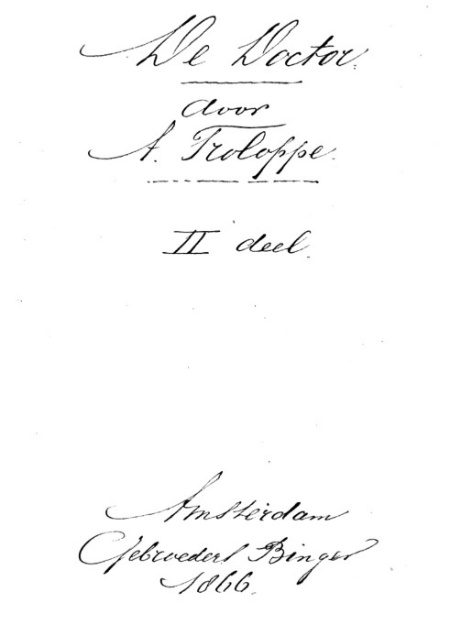 De Doctor.
door
A. Troloppe.
II deel.
Amsterdam
Gebroeders Binger
1866.